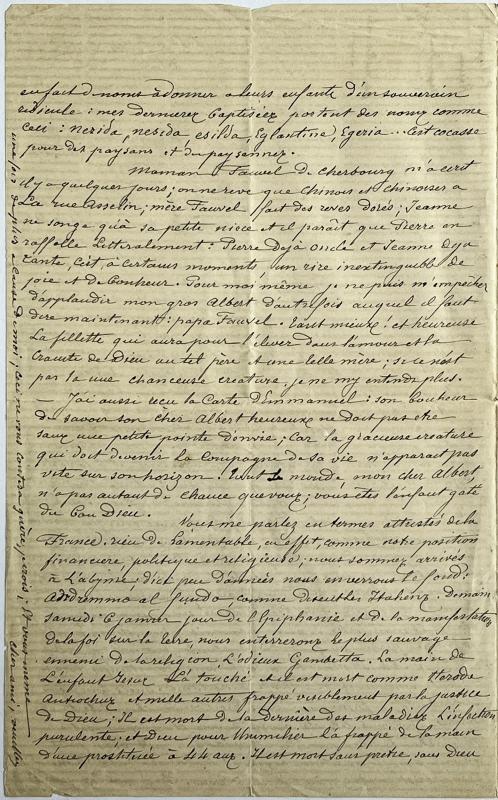 en fait de noms à donner a leurs enfants d'un souverain
ridicule : mes dernieres Baptisées portent des noms comme
ceci : nerida, nesida esilda, Eglantine, Egeria ... C'est cocasse
pour des paysans et des paysannes.
Maman Fauvel de Cherbourg m'a ecrit
il y a quelques jours ; on ne reve que Chinois et Chinoises a
La rue Asselin ; mère Fauvel fait des reves dorés ; Jeanne
ne songe qu'à sa petite niece et il paraît que Pierre en
raffolle Litteralement : Pierre Dejà oncle et Jeanne deja
tante, C'est, à certains moments, un rire inextinguible de
joie et de Bonheur. Pour moi même je ne puis m'empêcher
d'applaudir mon gros Albert d'autrefois auquel il faut
dire maintenant : papa Fauvel. tant mieux ! et heureuse
La fillette qui aura pour l'elever dans l'amour et la
Crainte de Dieu un tel père et une telle mère ; si ce n'est
pas la une chanceuse creature, je ne m'y entends plus.
— J'ai aussi reçu la Carte d'Emmanuel : son Bonheur
de savoir son cher Albert heureux ne doit pas etre
sans une petite pointe d'envie ; Car la gracieuse creature
qui doit devenir la Compagne de sa vie n'apparait pas
vite sur son horizon. tout le monde, mon cher Albert,
n'a pas autant de chance que vous ; vous etes l'enfant gaté
du Bon Dieu.
Vous me parlez en termes attristés de la
France. rien de lamentable, en effet, comme notre position
financiere, politique et religieuse ; nous sommes arrivés
à L'abyme ; d'ici peu d'années nous en verrons le fond :
Andremmo al fundo, comme disent les Italiens. Demain
samedi 6 janvier jour de l'Epiphanie et de la manifestation
de la foi sur la terre, nous enterrerons le plus sauvage
ennemi de la religion, L'odieux Gambetta. La main de
L'enfant Jesus L'a touché et il est mort comme Herode
Antiochus et mille autres frappé visiblement par la justice
de Dieu ; Il est mort de la derniere des maladies L'infection
purulente ; et Dieu pour l'humilier l'a frappé de la main
d'une prostituée à 44 ans. Il est mort sans pretre, sans Dieu